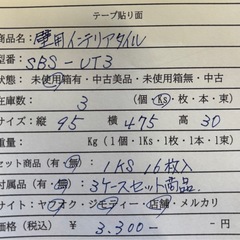 テープ貼り面
商品名:壁用インテリアタイル
型番:SBS-UT3
状態:未使用箱有・中古美品・未使用箱無・中古
在庫数: 3 (個・Ks・枚・本・束)
サイズ:縦 95 横 475 高 30
重量: Kg(1個・1Ks・1枚・1本・束)
セット商品(有・無) 1KS 16枚入
付属品(有・無) 3ケースセット商品.
サイト・ヤフオク・ジモティー・店舗・メルカリ
価格(税込) ¥ 3.300- 円